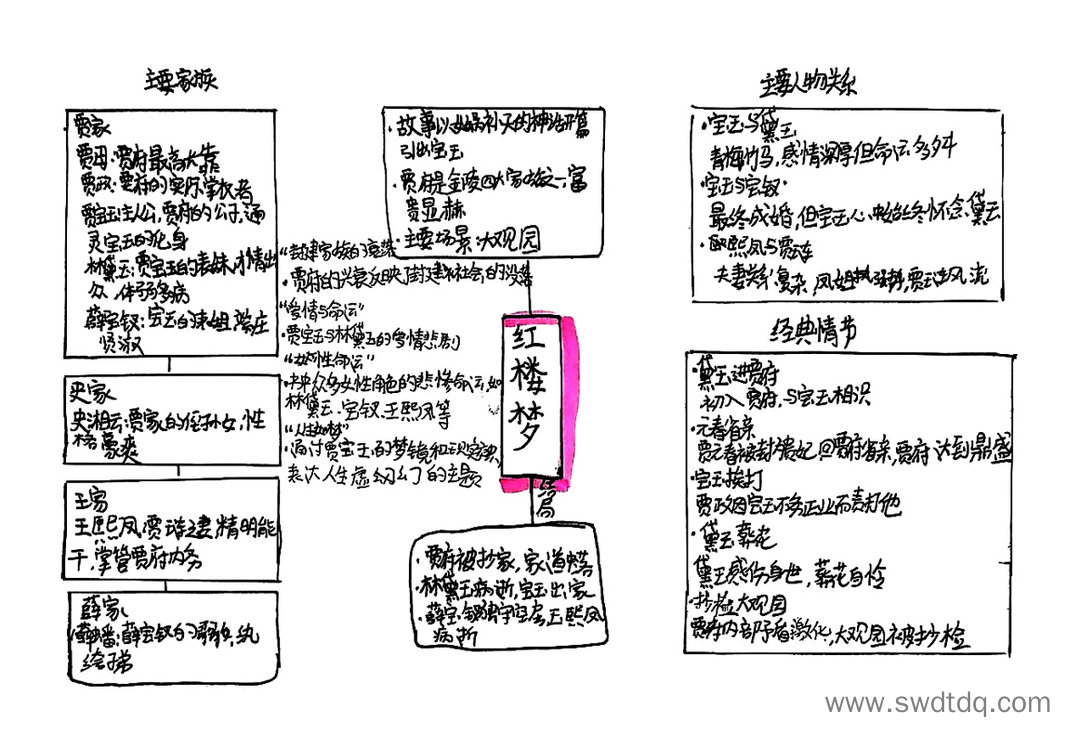 主要家族
贾家
贾母:贾府最高大靠
贾政:贾府的实际掌权者
贾宝玉:主人公,贾府的公子,通
灵宝玉的化身
林黛玉:贾宝玉的表妹,才情出
众,体弱多病
薛宝钗:宝玉的表姐,端庄
贤淑
史家
史湘云:贾家的侄孙女,性
格豪爽
王家
王熙凤:贾琏之妻,精明能
干,掌管贾府内务
薛家
薛蟠:薛宝钗的哥哥,纨
绔子弟
·故事以女娲补天的神话开篇
引出宝玉
·贾府是金陵四大家族之一,富
贵显赫
·主要场景:大观园
“封建家族的衰落
·贾府的兴衰反映了封建社会的没落
“爱情与命运”
·贾宝玉与林黛玉的爱情悲剧
“女性命运”
·书中众多女性角色的悲惨命运,如
林黛玉、宝钗、王熙凤等
“人生如梦”
·通过贾宝玉的梦镜和现实
表达人生虚幻的主题
红楼梦
结局
·贾府被抄家,家道中落
·林黛玉病逝,宝玉出家
·薛宝钗独守空房,王熙凤
病逝
主要人物关系
·宝玉与黛玉
青梅竹马,感情深厚但命运多舛
·宝玉与宝钗·
最终成婚,但宝玉心中始终怀念黛玉
·王熙凤与贾琏
夫妻关系复杂,凤姐强势,贾琏风流
经典情节
·黛玉进贾府
初入贾府,与宝玉相识
·元春省亲
贾元春被封贵妃,回贾府省亲,贾府达到鼎盛
·宝玉挨打
贾政因宝玉不务正业而责打他
·黛玉葬花
黛玉感伤身世,葬花自怜
·抄检大观园
贾府内部矛盾激化,大观园被抄检
www.swdtdq.com